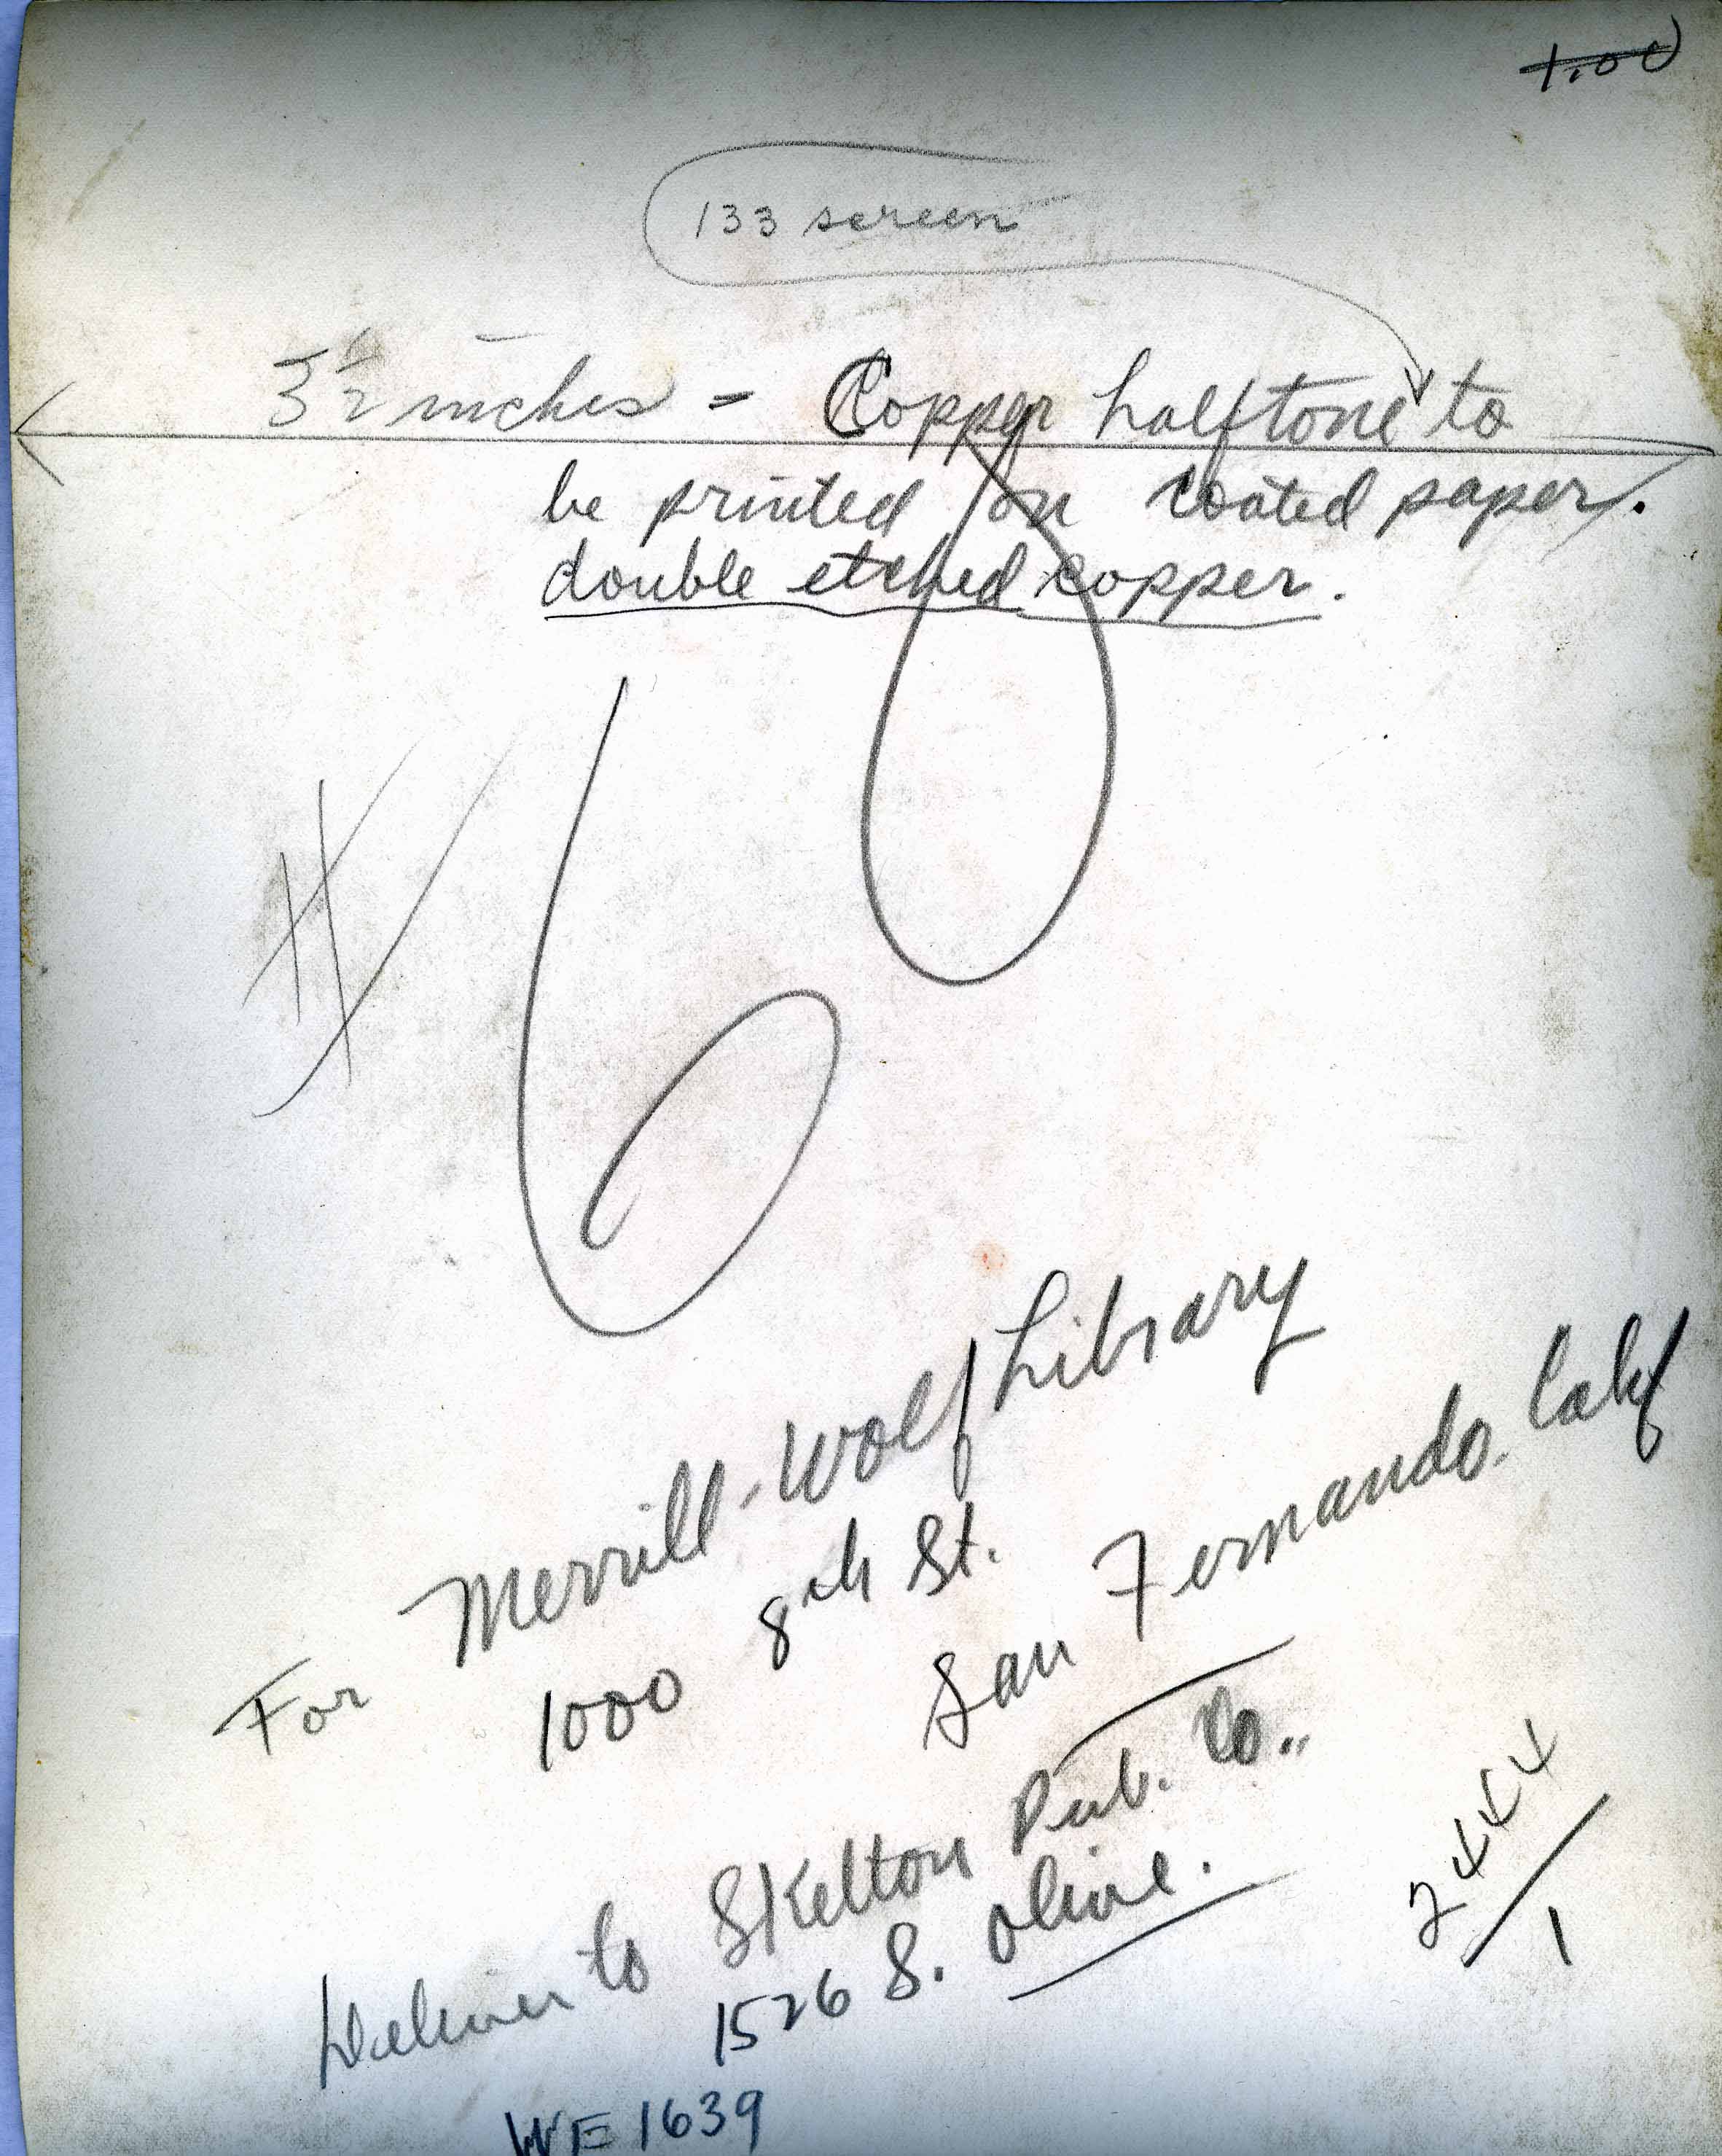 1.00
133 screen
3 1/2 inches = Copper halftone to
be printed on coated paper.
double etched copper.
# 6
For Merrill-Wolf Library
1000 8th St.
San Fernando. Calif
Deliver to Skelton Pub. Co..
1526 S. Olive.
2444/1
WE 1639